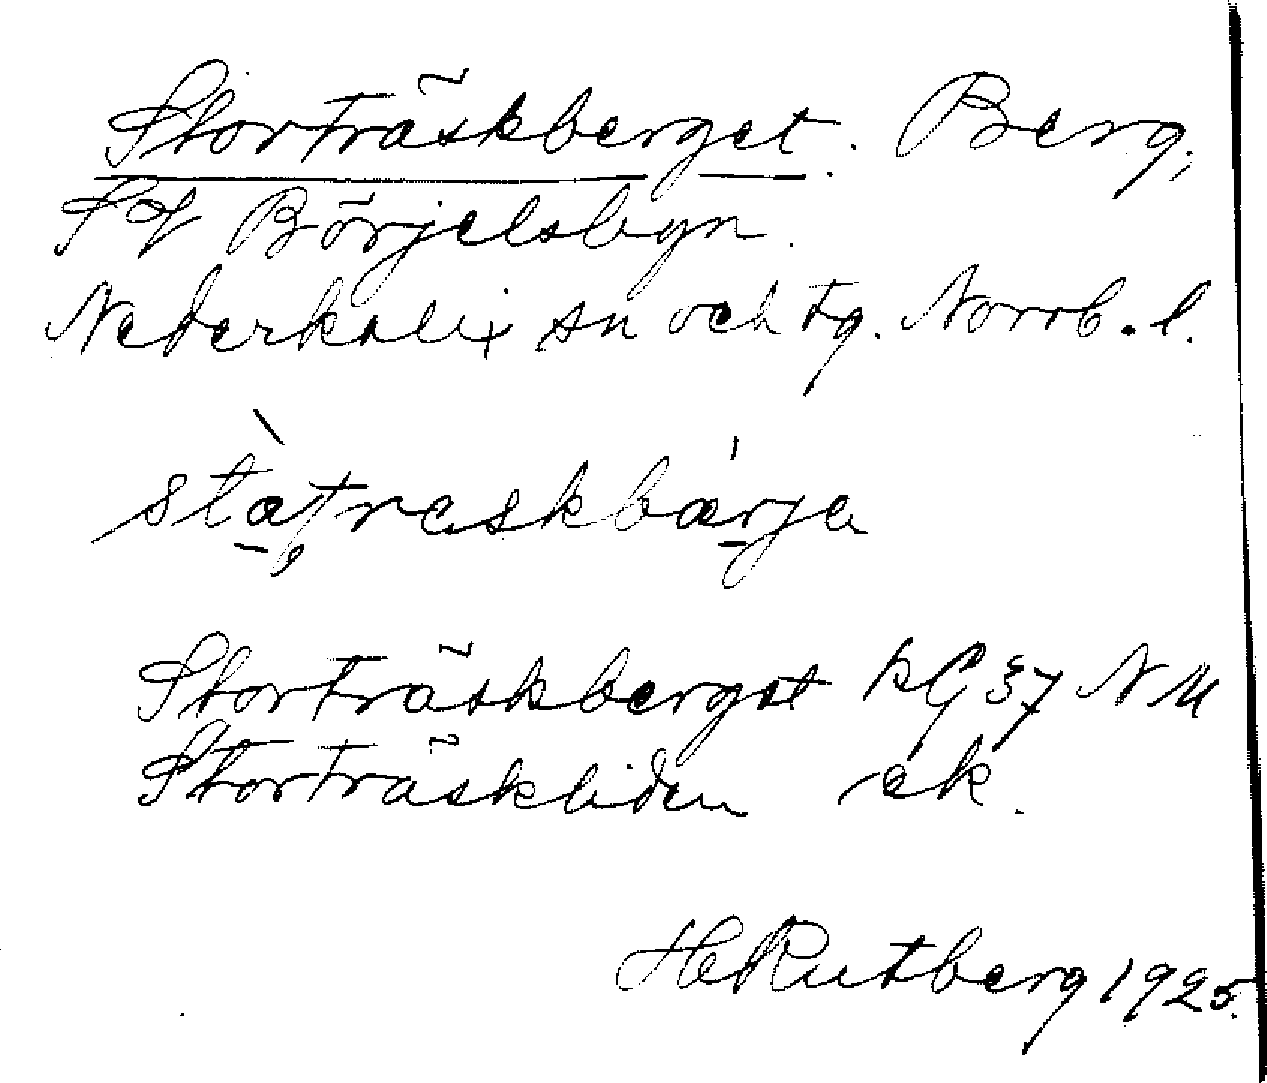 Storträskberget. Berg,
SV Börjelsbyn.
Nederkalix sn och tg. Norrb. l.
Storträskberget kG 37 NM
Storträskliden ek.
H Rutberg 1925.